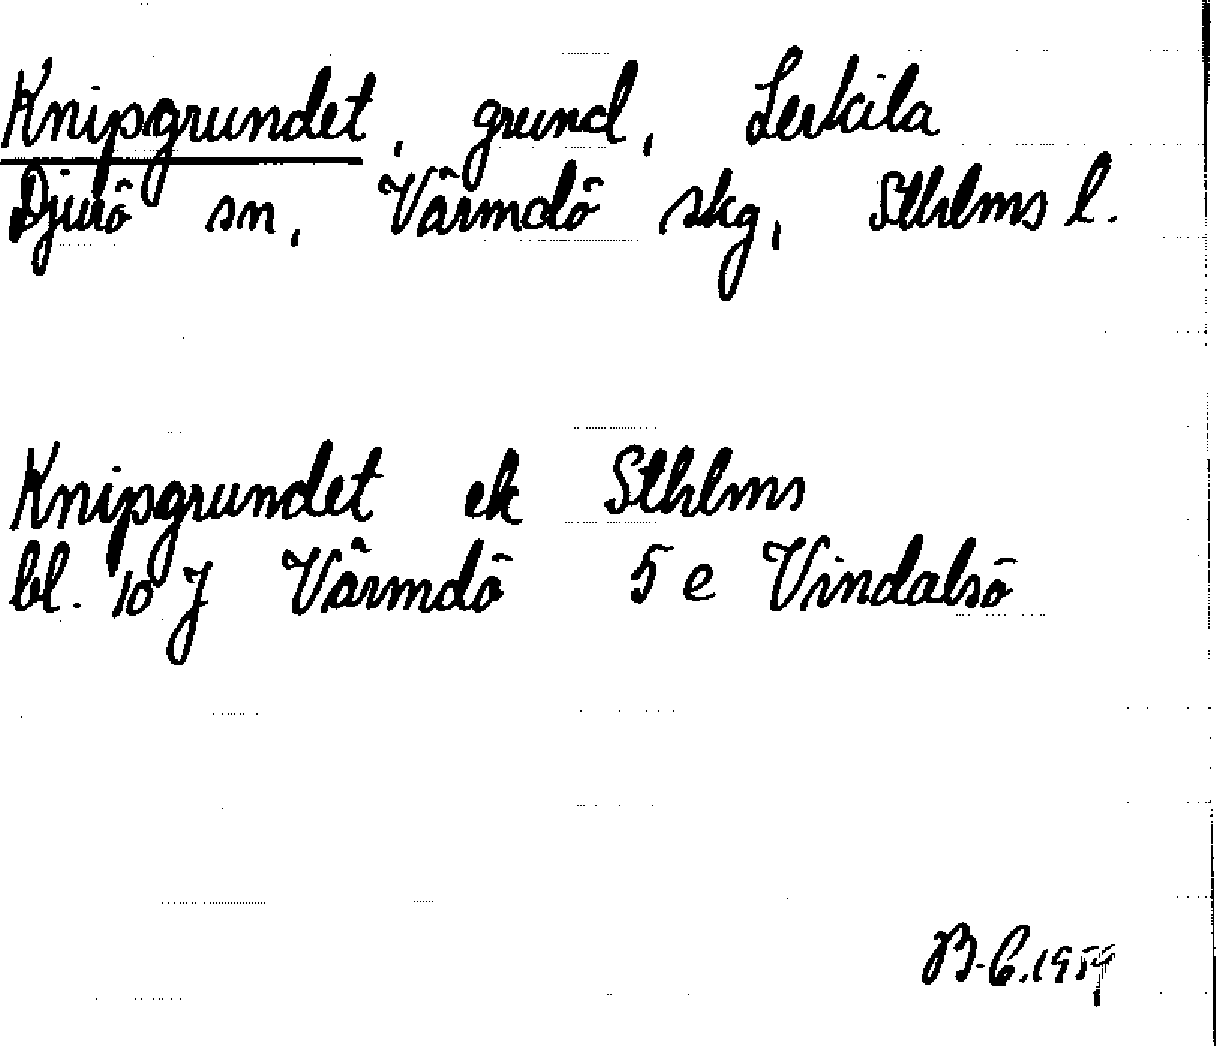 Knipgrundet, grund, Lerkila
Djurö sn, Värmdö skg, Sthlms l.
Knipgrundet ek Sthlms
bl. 10 J Värmdö 5 e Vindalsö
B-C.1959